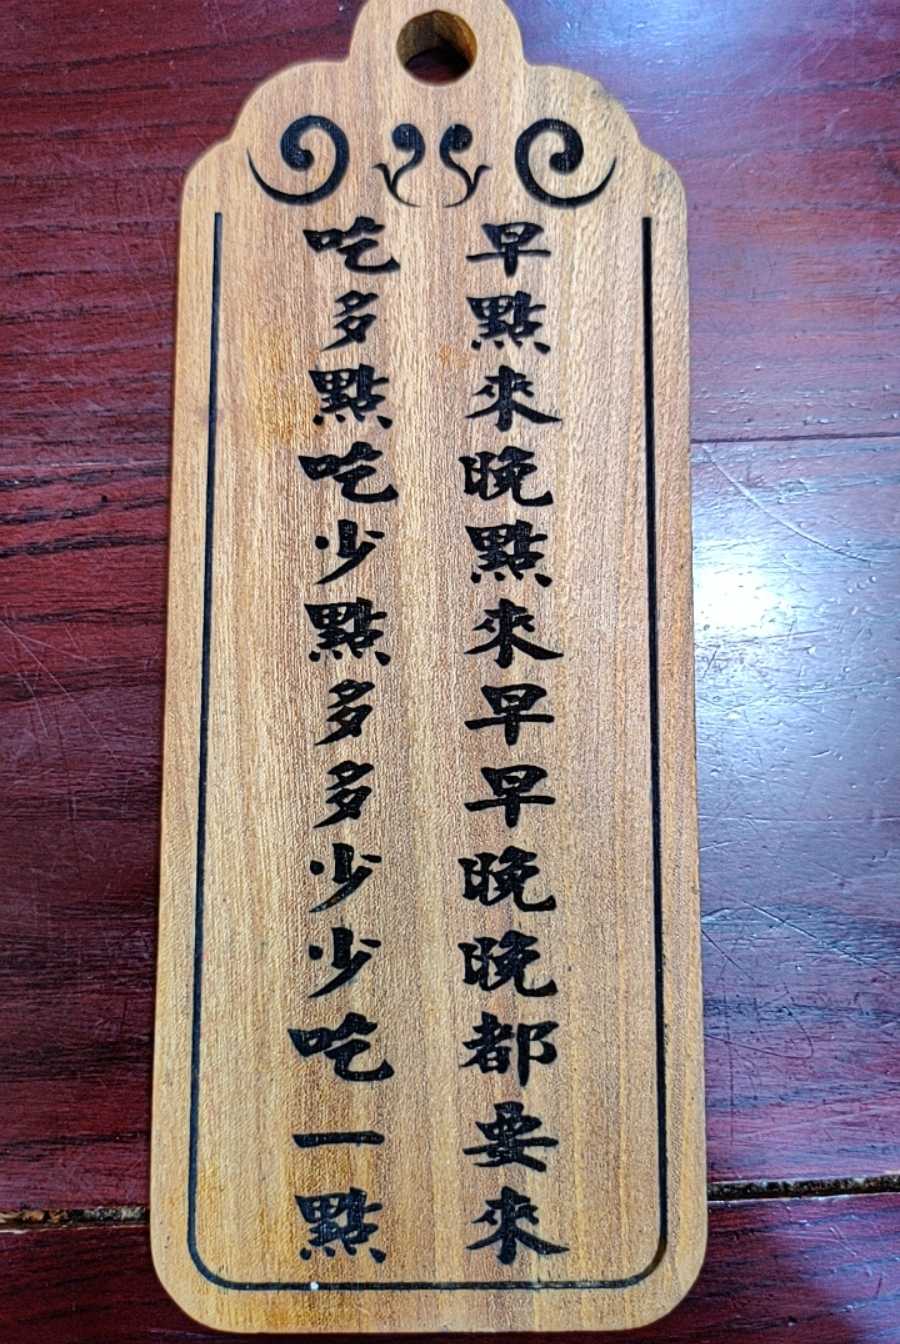 早點來晚點來早早晚晚都要來
吃多點吃少點多多少少吃一點